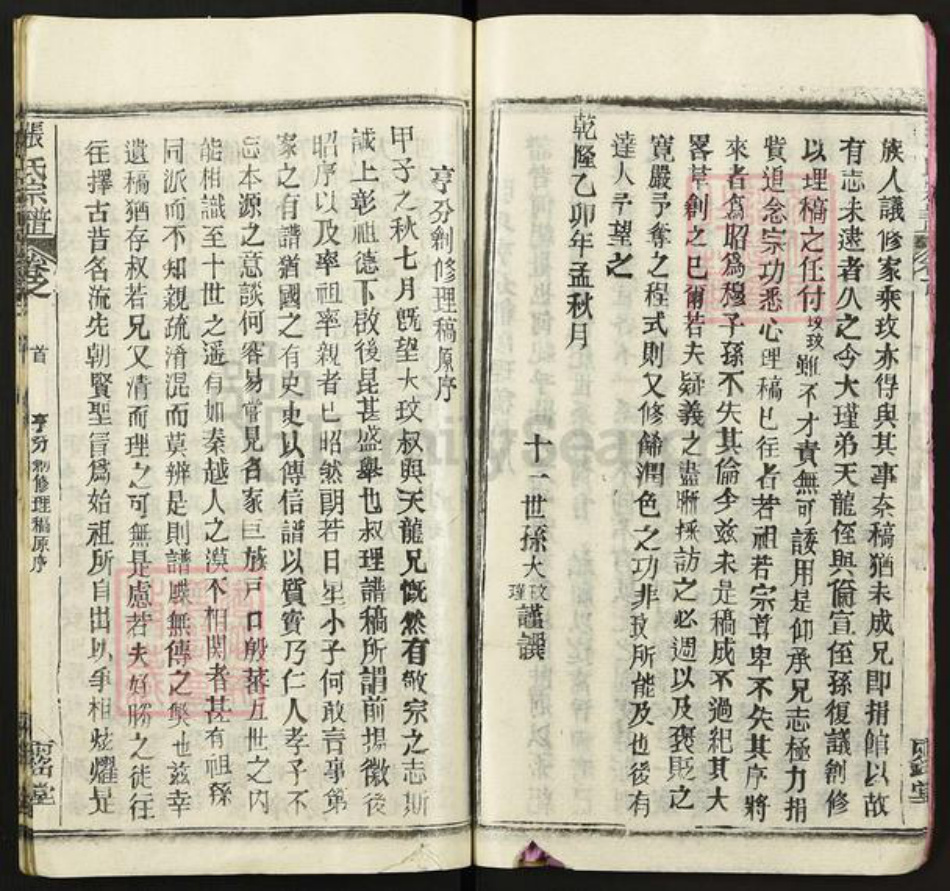 族人議修家乘玫亦得與其事奈稿猶未成兄即捐館以故
有志未逮者久之今大瑾弟天龍侄與侖宣侄孫復議創修
以理稿之任付玫玫雖不才責無可諉用是仰承兄志極力捐
貲追念宗功悉心理稿已往者若祖若宗尊卑不失其序將
來者為昭為穆子孫不失其倫今茲未是稿成不過紀其大
畧草創之已爾若夫疑義之盡晰採訪之必週以及褒貶之
寬嚴予奪之程式則又修餙潤色之功非玫所能及也後有
達人予望之
乾隆乙卯年孟秋月
十一世孫大玫瑾謹譔
亨分創修理稿原序
甲子之秋七月既望大玫叔與天龍兄慨然有敬宗之志斯
誠上彰祖德下啟後昆甚盛舉也叔理譜稿所謂前揚徽後
昭序以及率祖率親者已昭然朗若日星小子何敢言事第
家之有譜猶國之有史史以傳信譜以質實乃仁人孝子不
忘本源之意談何容易嘗見各家巨族戶口般蕃五世之內
能相識至十世之遥有如秦越人之漠不相関者甚有祖孫
同派而不知親疏淆混而莫辨是則譜牒無傳之獘也茲幸
遺稿猶存叔若兄又清而理之可無是慮若夫好勝之徒往
往擇古昔名流先朝賢聖冒為始祖所自出以爭相炫燿是
張氏宗譜
卷之
首
亨分創修理稿原序
堂